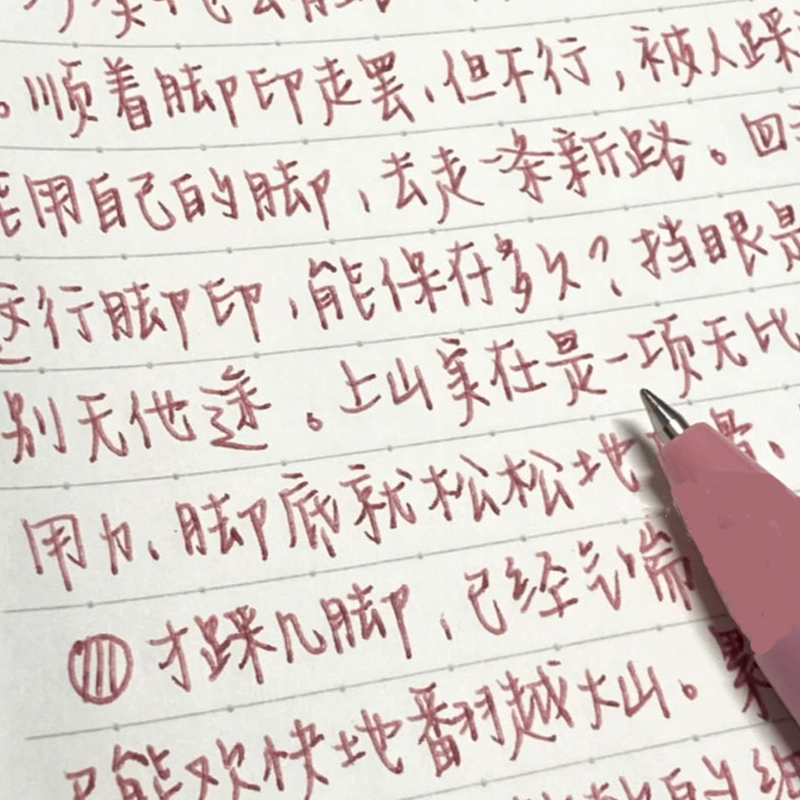 。顺着脚印走罢,但不行,被人踩
能用自己的脚,去走一条新路。回
这行脚印,能保存多久?挡眼是
别无他途。上山实在是一项无比
用力、脚底就松松地滑、
才踩几脚,已经气喘
只能欢快地翻越大山。